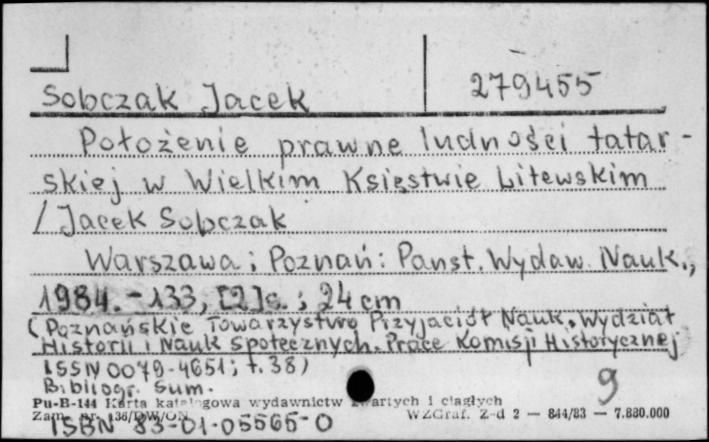 Sobczak Jacek 279455
Położenie prawne ludności tatar-
skiej w Wielkim Księstwie Litewskim
/ Jacek Sobczak
Warszawa ; Poznań : Państ. Wydaw. Nauk.,
1984. - 133, [2] s. ; 24 cm
(Poznańskie Towarzystwo Przyjaciół Nauk. Wydział
Historii i Nauk Społecznych. Prace Komisji Historycznej
ISSN 0079-4651 ; t. 38)
Bibliogr. Sum. 9
Pu-B-144 Karta katalogowa wydawnictw zwartych i ciągłych
Zam. nr. 136/DW/ON WZGraf. Z-d 2 — 844/83 — 7.880.000
ISBN 83-01-05565-0